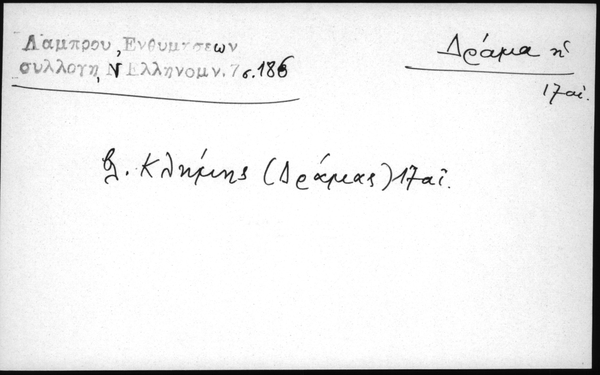 Λαμπρου, Ενθυμησεων
συλλογη, Ν Ελληνομν. 7 σ. 186
Δράμα ἡ
17 αἰ.
βλ. Κλήμης (Δράμας) 17 αἰ.